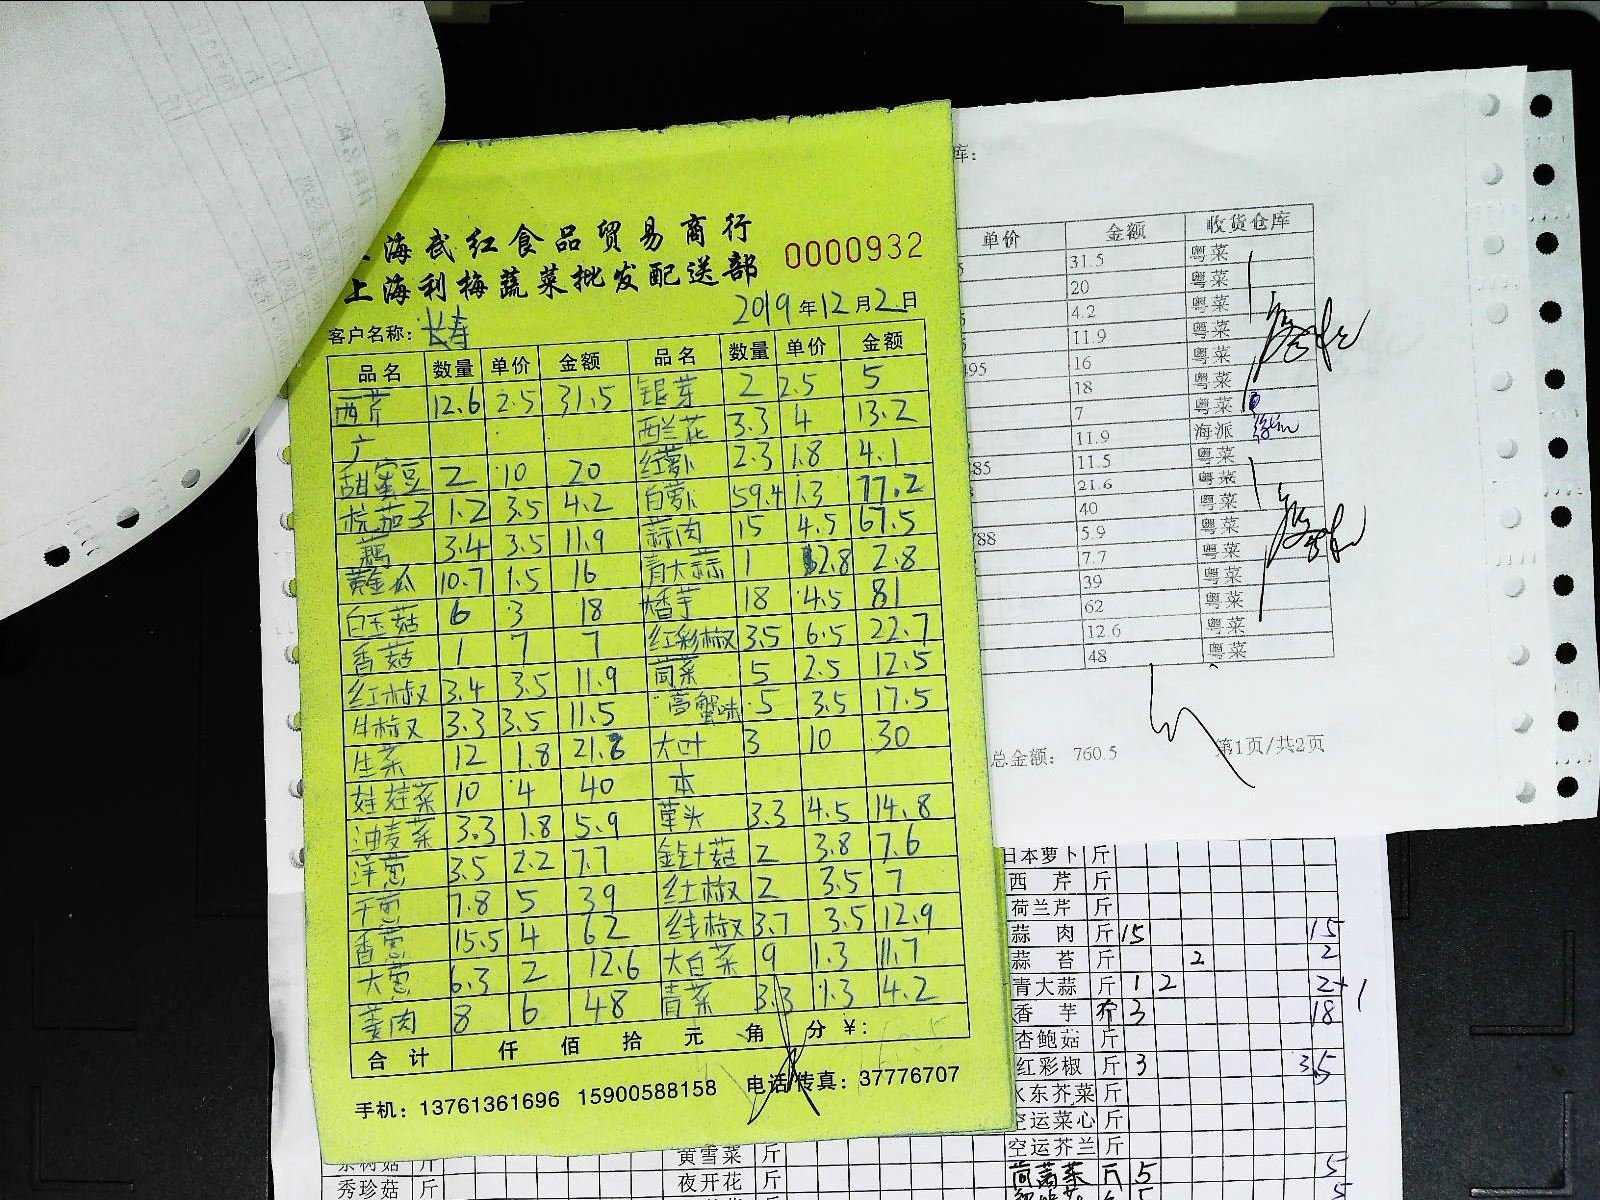 海武红食品贸易商行
上海利梅蔬菜批发配送部
0000932
2019年12月2日
客户名称：长寿
品名 数量 单价 金额 品名 数量 单价 金额
西芹 12.6 2.5 31.5 银芽 2 2.5 5
西兰花 3.3 4 13.2
甜蜜豆 2 10 20 红萝卜 2.3 1.8 4.1
杭茄子 1.2 3.5 4.2 白萝卜 59.4 1.3 77.2
藕 3.4 3.5 11.9 蒜肉 15 4.5 67.5
黄瓜 10.7 1.5 16 青大蒜 1 2.8 2.8
白玉菇 6 3 18 香芋 18 4.5 81
香菇 1 7 7 红彩椒 3.5 6.5 22.7
红椒 3.4 3.5 11.9 茼菜 5 2.5 12.5
牛椒 3.3 3.5 11.5 蟹味 5 3.5 17.5
生菜 12 1.8 21.6 大叶 3 10 30
娃娃菜 10 4 40 本
油麦菜 3.3 1.8 5.9 草头 3.3 4.5 14.8
洋葱 3.5 2.2 7.7 金针菇 2 3.8 7.6
干葱 7.8 5 39 红椒 2 3.5 7
香葱 15.5 4 62 线椒 3.7 3.5 12.9
大葱 6.3 2 12.6 大白菜 9 1.3 11.7
姜肉 8 6 48 青菜 3.3 1.3 4.2
合计 仟 佰 拾 元 角 分 ¥：
手机：13761361696 15900588158 电话/传真：37776707
库：
单价 金额 收货仓库
31.5 粤菜
20 粤菜
4.2 粤菜
11.9 粤菜
495 16 粤菜
18 粤菜
7 粤菜
11.9 海派
85 11.5 粤菜
21.6 粤菜
40 粤菜
788 5.9 粤菜
7.7 粤菜
39 粤菜
62 粤菜
12.6 粤菜
48 粤菜
总金额： 760.5 第1页/共2页
日本萝卜 斤
西芹 斤
荷兰芹 斤
蒜肉 斤 15 15
蒜苔 斤 2 2
青大蒜 斤 1 2 2+1
香芋 3 18
杏鲍菇 斤
红彩椒 斤 3 3.5
水东芥菜 斤
空运菜心 斤
空运芥兰 斤
茼蒿菜 斤 5 5
黄雪菜 斤
秀珍菇 斤 夜开花 斤